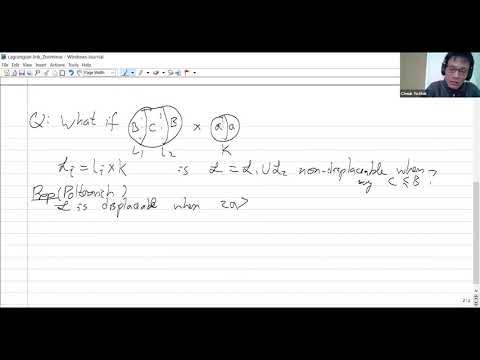 Lagrangian link_Zoominar - Windows Journal
File Edit View Insert Actions Tools Help
Page Width
Q: What if B C B × a a
L₁ L₂ K
𝓛ᵢ = Lᵢ × K is 𝓛 = 𝓛₁ ∪ 𝓛₂ non-displaceable when
say C ≤ B ?
Prop (Polterovich)
𝓛 is displaceable when 2a>
2 / 2